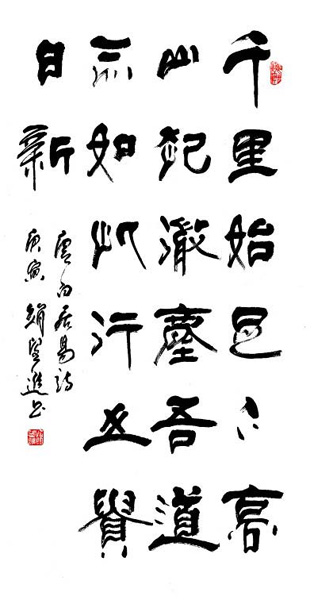 千里始足下高
山起微塵吾道
亦如此行之貴
日新
唐白居易詩
庚寅